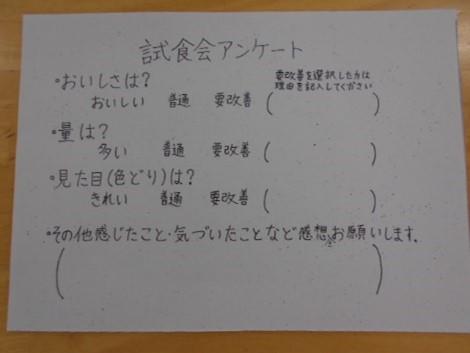 試食会アンケート
・おいしさは?
要改善を選択した方は
理由を記入してください
おいしい 普通 要改善 ( )
・量は?
多い 普通 要改善 ( )
・見た目(色どり)は?
きれい 普通 要改善 ( )
・その他感じたこと・気づいたことなど感想をお願いします。
( )